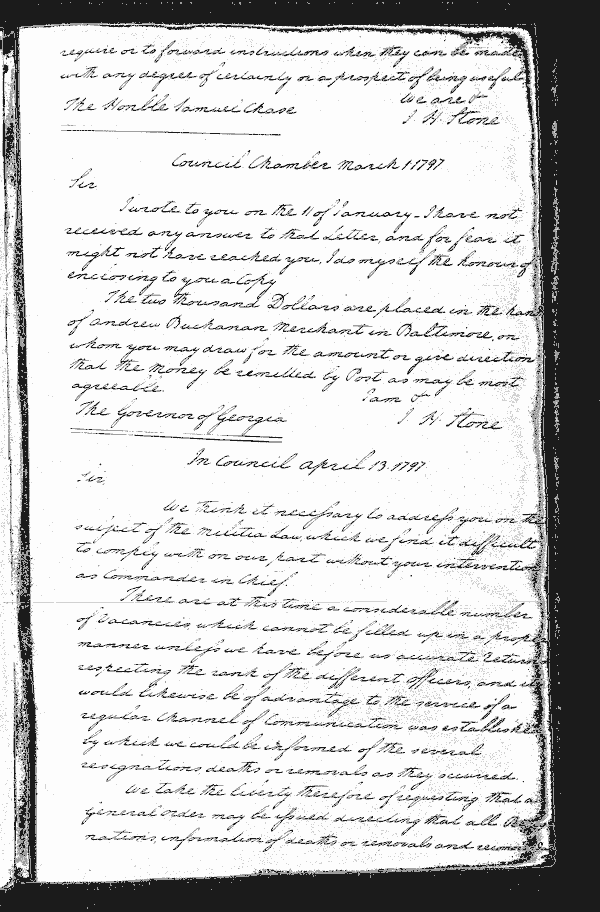 require or to forward instructions when they can be made
with any degree of certainty or a prospect of being useful.
We are &
The Honble Samuel Chase
J. H. Stone
Council Chamber March 1 1797
Sir
I wrote to you on the 11 of January - I have not
received any answer to that Letter, and for fear it
might not have reached you, I do myself the honour of
enclosing to you a Copy
The two thousand Dollars are placed in the han
of Andrew Buchanan Merchant in Baltimore, on
whom you may draw for the amount or give direction
that the money be remitted by Post as may be most
agreeable.
I am &
The Governor of Georgia
J. H. Stone
In Council April 13. 1797
Sir
We think it necessary to address you on the
subject of the Militia Law, which we find it difficult
to comply with on our part without your intervention
as Commander in Chief.
There are at this time a considerable number
of Vacancies which cannot be filled up in a prope
manner unless we have before us accurate Return
respecting the rank of the different officers, and it
would likewise be of advantage to the service if a
regular Channel of Communication was established
by which we could be informed of the several
resignations deaths or removals as they occurred.
We take the liberty therefore of requesting that a
General order may be issued directing that all Re
nations, information of deaths or removals and